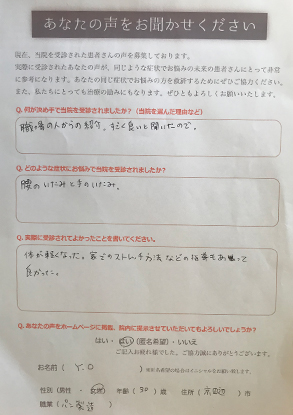 あなたの声をお聞かせください
現在、当院を受診された患者さんの声を募集しております。
実際に受診されたあなたの声が、同じような症状でお悩みの未来の患者さんにとって非常
に参考になります。あなたの同じ症状でお悩みの方を救済するためにぜひご協力ください。
また、私たちにとっても治療の励みにもなります。ぜひともよろしくお願いいたします。
Q. 何が決め手で当院を受診されましたか？（当院を選んだ理由など）
職場の人からの紹介。すごく良いと聞いたので。
Q. どのような症状にお悩みで当院を受診されましたか？
腰のいたみと手のいたみ。
Q. 実際に受診されてよかったことを書いてください。
体が軽くなった。家でのストレッチ方法などの指導もあって
良かった。
Q. あなたの声をホームページに掲載、院内に提示させていただいてもよろしいでしょうか？
はい・はい（匿名希望）・いいえ
ご記入お疲れ様でした。ご協力誠にありがとうございます。
お名前（ Y.O ）※匿名希望の場合はイニシャルをお願い致します。
性別（男性・女性） 年齢（30）歳 住所（ ）市
職業（パン製造）